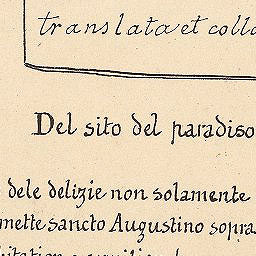 translata et collo
Del sito del paradiso
dele delizie non solamente
mette sancto Augustino sopra